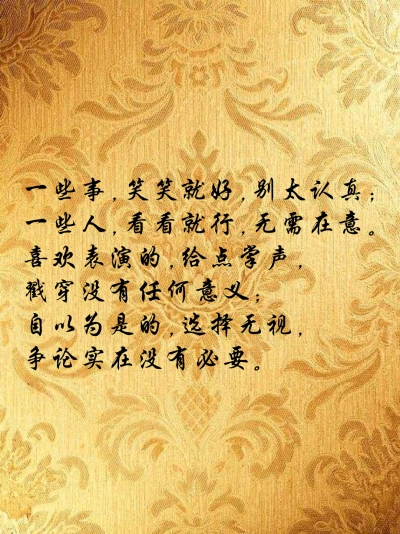 一些事,笑笑就好,别太认真;
一些人,看看就行,无需在意。
喜欢表演的,给点掌声,
戳穿没有任何意义;
自以为是的,选择无视,
争论实在没有必要。